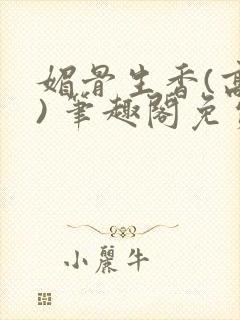 媚骨生香(高
)笔趣阁免
小麗牛